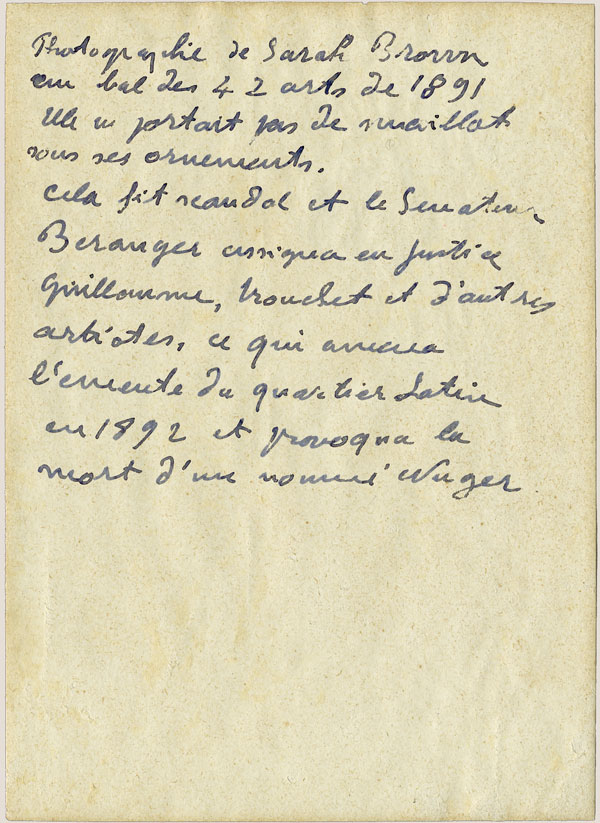 Photographie de Sarah Brown
au bal des 4 z arts de 1891
Elle ne portait pas de maillot
sous ses ornements.
Cela fit scandal et le Senateur
Beranger assigna en justice
Guillaume, Trouchet et d'autres
artistes, ce qui amena
l'emeute du quartier Latin
en 1892 et provoqua la
mort d'un nommé Nuger